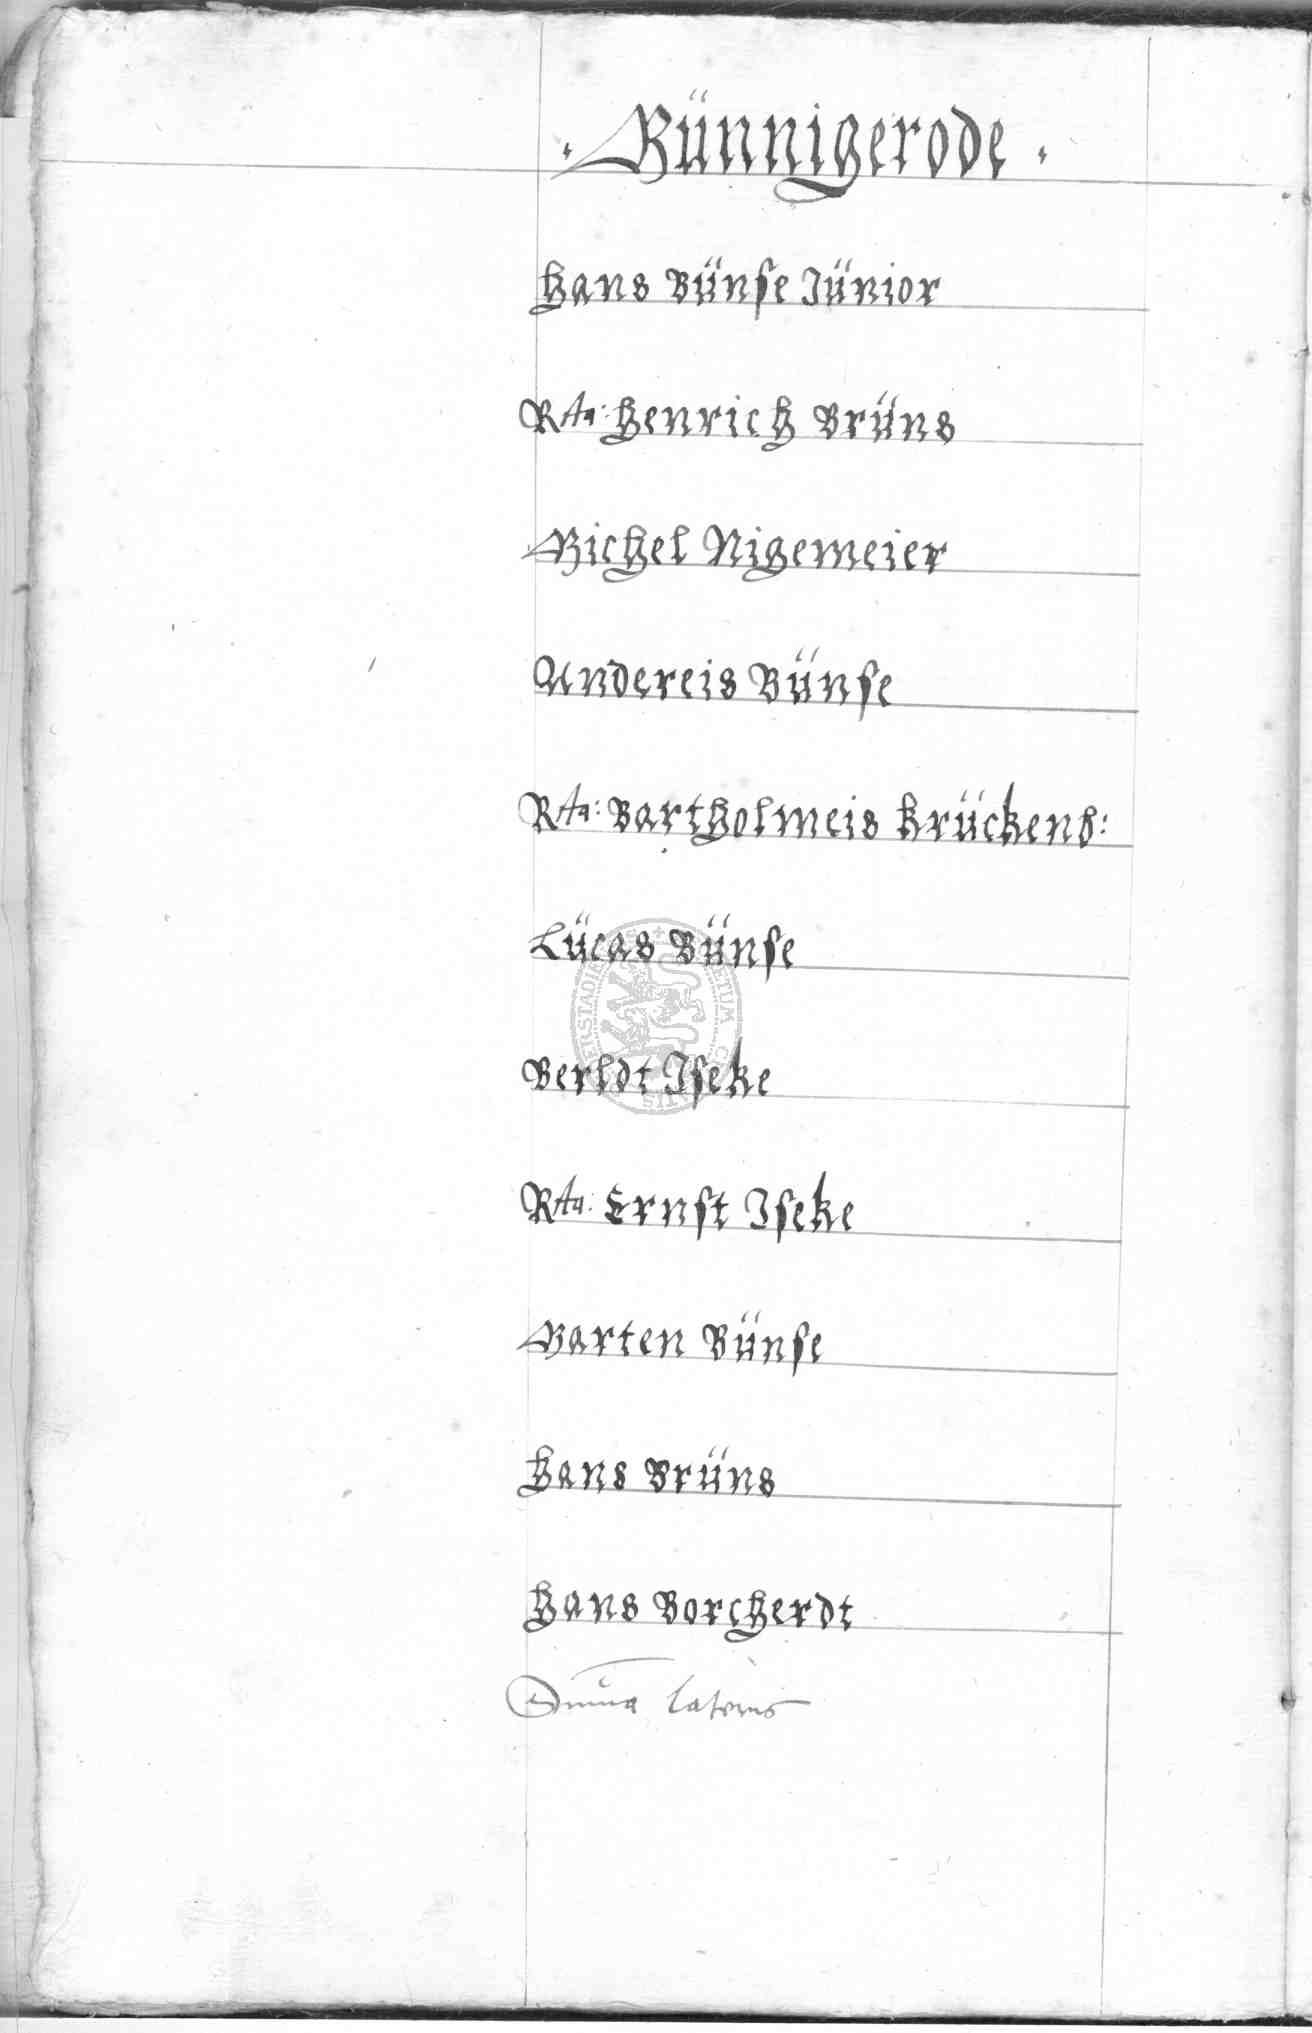 . Münnigerode .
Hans Bünse Jünior
Rta: Henrich Brüns
Michel Nigemeier
Andereis Bünse
Rta: Bartholmeis Krückenb:
Lücas Bünse
Berldt Iseke
Rta: Ernst Iseke
Marten Bünse
Hans Brüns
Hans Borcherdt
Summa lateris